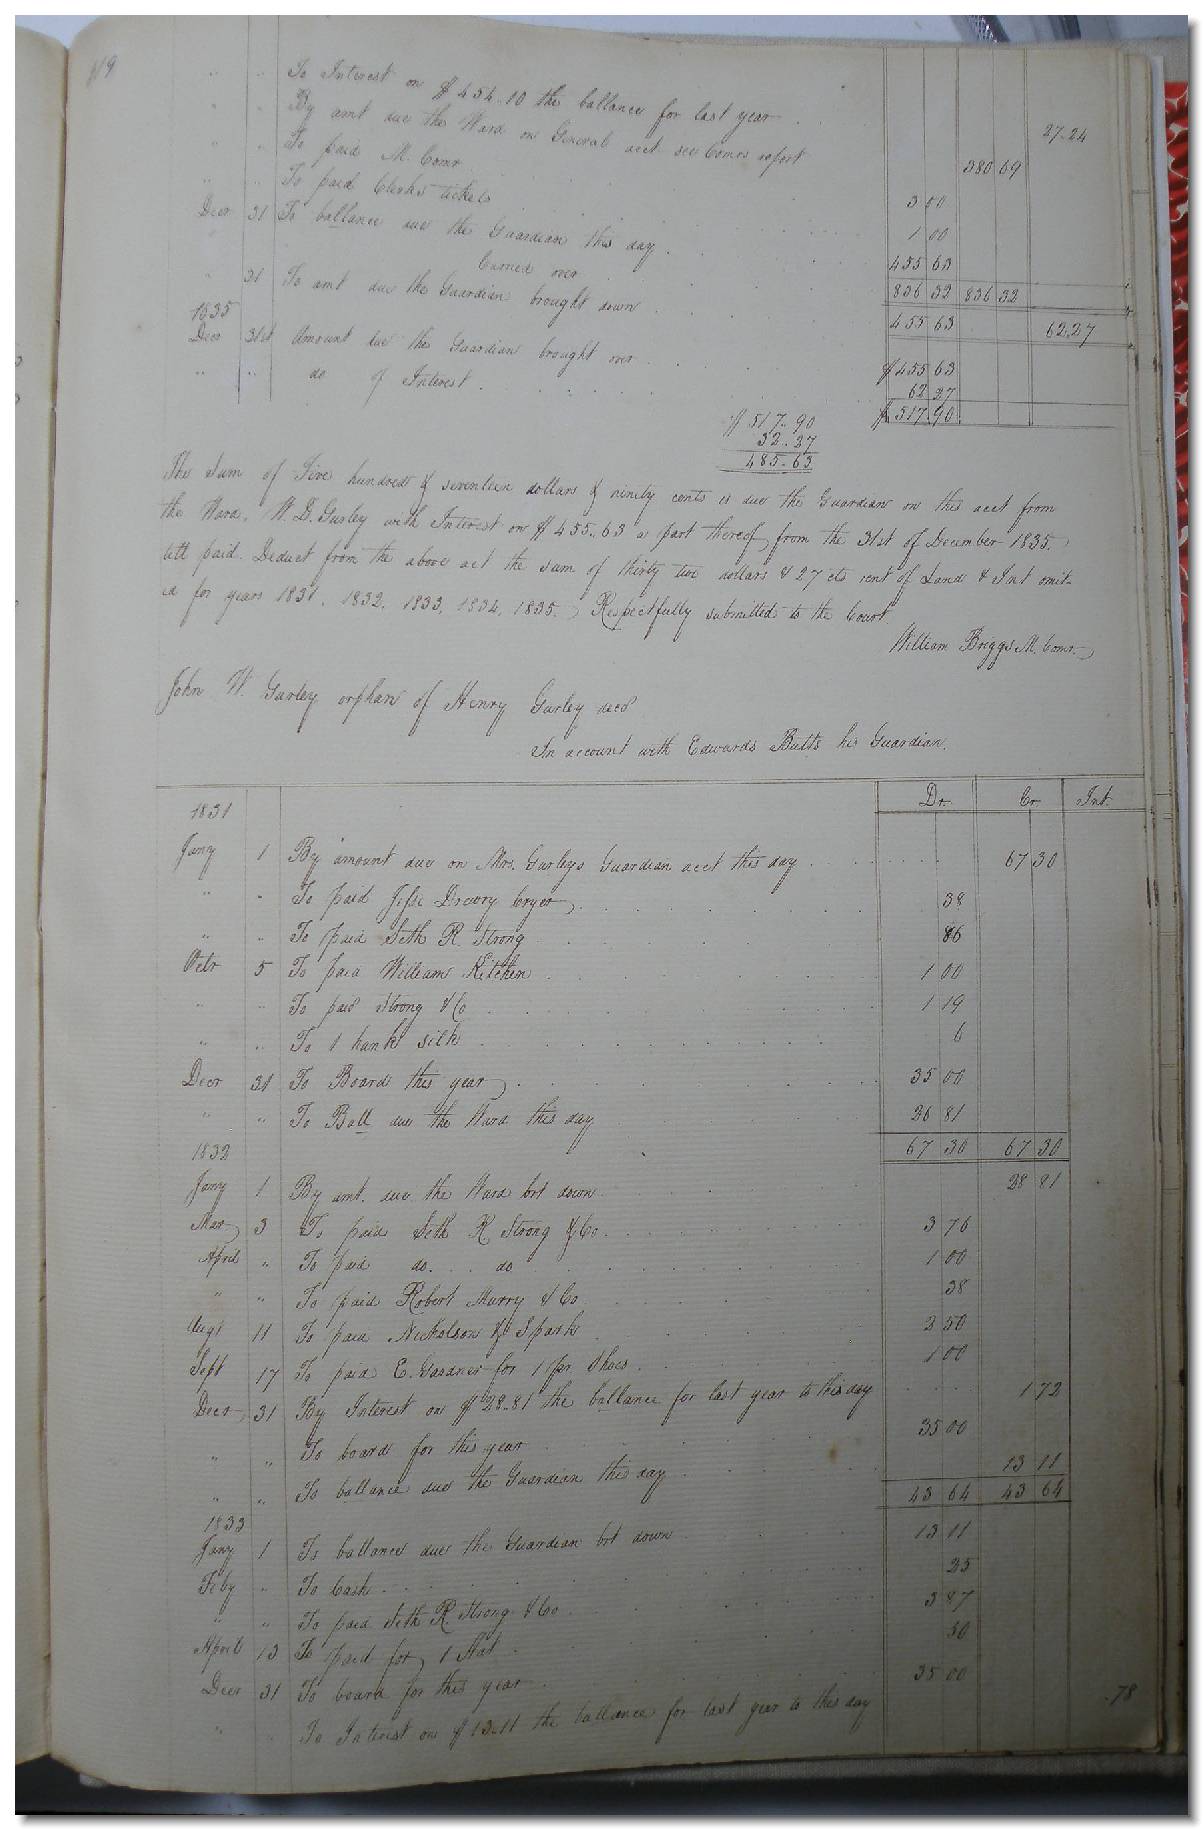 119
" " To Interest on $454.10 the ballance for last year 27.24
" " By amt due the Ward on General acct see Comrs report 380 69
" " To paid M. Comr 3 00
" " To paid Clerks tickets 1 00
Decr 31 To ballance due the Guardian this day 455 63
Carried over 836 32 836 32
" 31 To amt due the Guardian brought down 455 63 62.27
1835
Decr 31st Amount due the Guardian brought over $455 63
" " do of Interest 62 27
$517.90 $517.90
32.27
485.63
The Sum of Five hundred & seventeen dollars & ninety cents is due the Guardian on this acct from
the Ward, W. D. Gurley with Interest on $455.63 a part thereof from the 31st of December 1835.
till paid. Deduct from the above act the sum of thirty two dollars & 27 cts rent of Land & Int omit-
ed for years 1831. 1832. 1833. 1834. 1835. Respectfully submitted to the Court
William Briggs M. Comr.
John W. Gurley orphan of Henry Gurley decd
In account with Edwards Butts his Guardian.
Dr. Cr. Int.
1831
Jany 1 By amount due on Mrs. Gurleys Guardian acct this day 67 30
" " To paid Jesse Drewry Cryer 38
" " To paid Seth R. Strong 86
Octr 5 To paid William Kitchen 1 00
" " To paid Strong & Co 1 19
" " To 1 hank silk 6
Decr 31 To Board this year 35 00
" " To Ball due the Ward this day 28 81
67 30 67 30
1832
Jany 1 By amt. due the Ward brt down 28 81
Mar 3 To paid Seth R Strong & Co 3 76
April " To paid do. do 1 00
" " To paid Robert Murry & Co 38
Augt 11 To paid Nicholson & Spark 2 50
Sept 17 To paid E. Gardner for 1 pr Shoes 1 00
Decr 31 By Interest on $28.81 the ballance for last year to this day 1 72
" " To board for this year 35 00
" " To ballance due the Guardian this day 13 11
43 64 43 64
1833
Jany 1 To ballance due the Guardian brt down 13 11
Feby " To Cash 25
" " To paid Seth R. Strong & Co 3 87
April 13 To paid for 1 Hat 50
Decr 31 To board for this year 35 00
" " To Interest on $13.11 the ballance for last year to this day .78